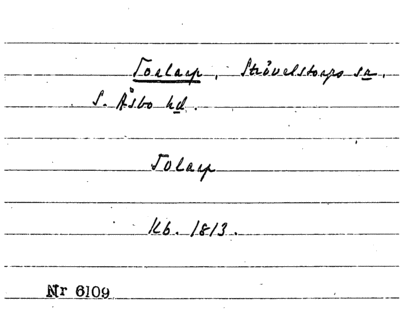 Torlarp, Strövelstorps sn.
S. Åsbo hd.
Tolarp
Kb. 1813.
Nr 6109